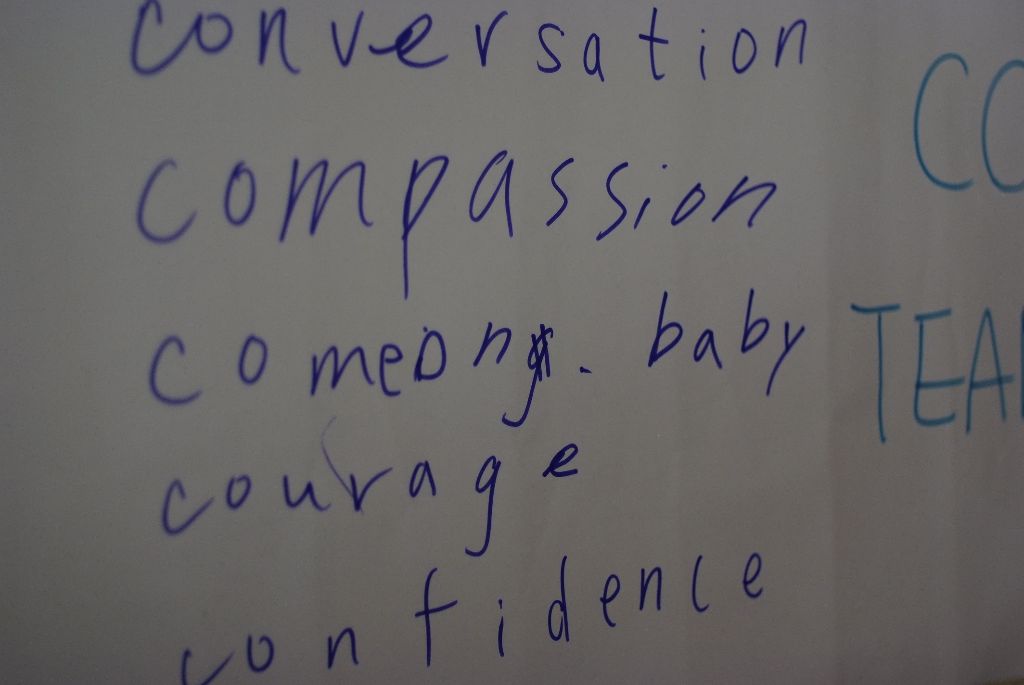 conversation
compassion
comeon. baby
courage
confidence
CO
TEA